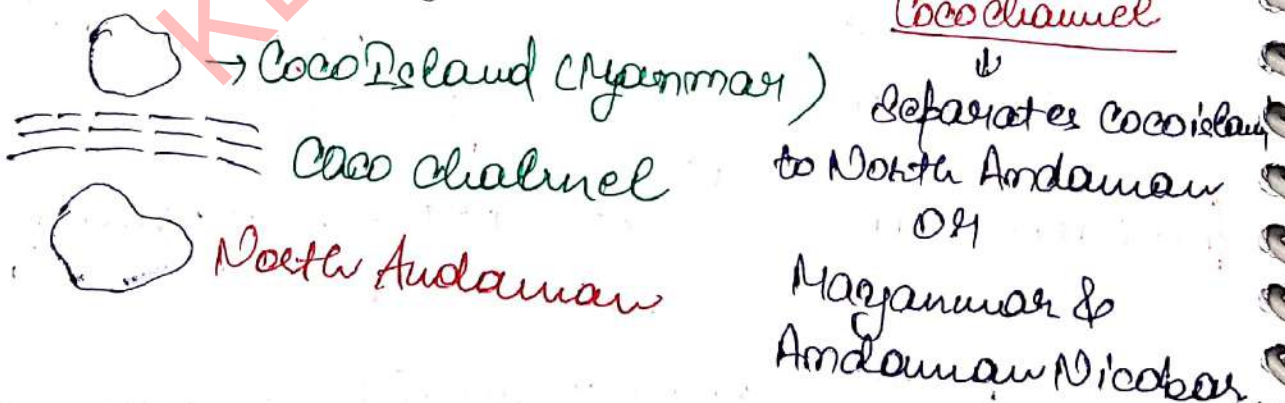 → Coco Island (Myanmar)
Coco channel
North Andaman
Coco channel
↓
Separates Coco islan
to North Andaman
OR
Mayanmar &
Andaman Nicobar